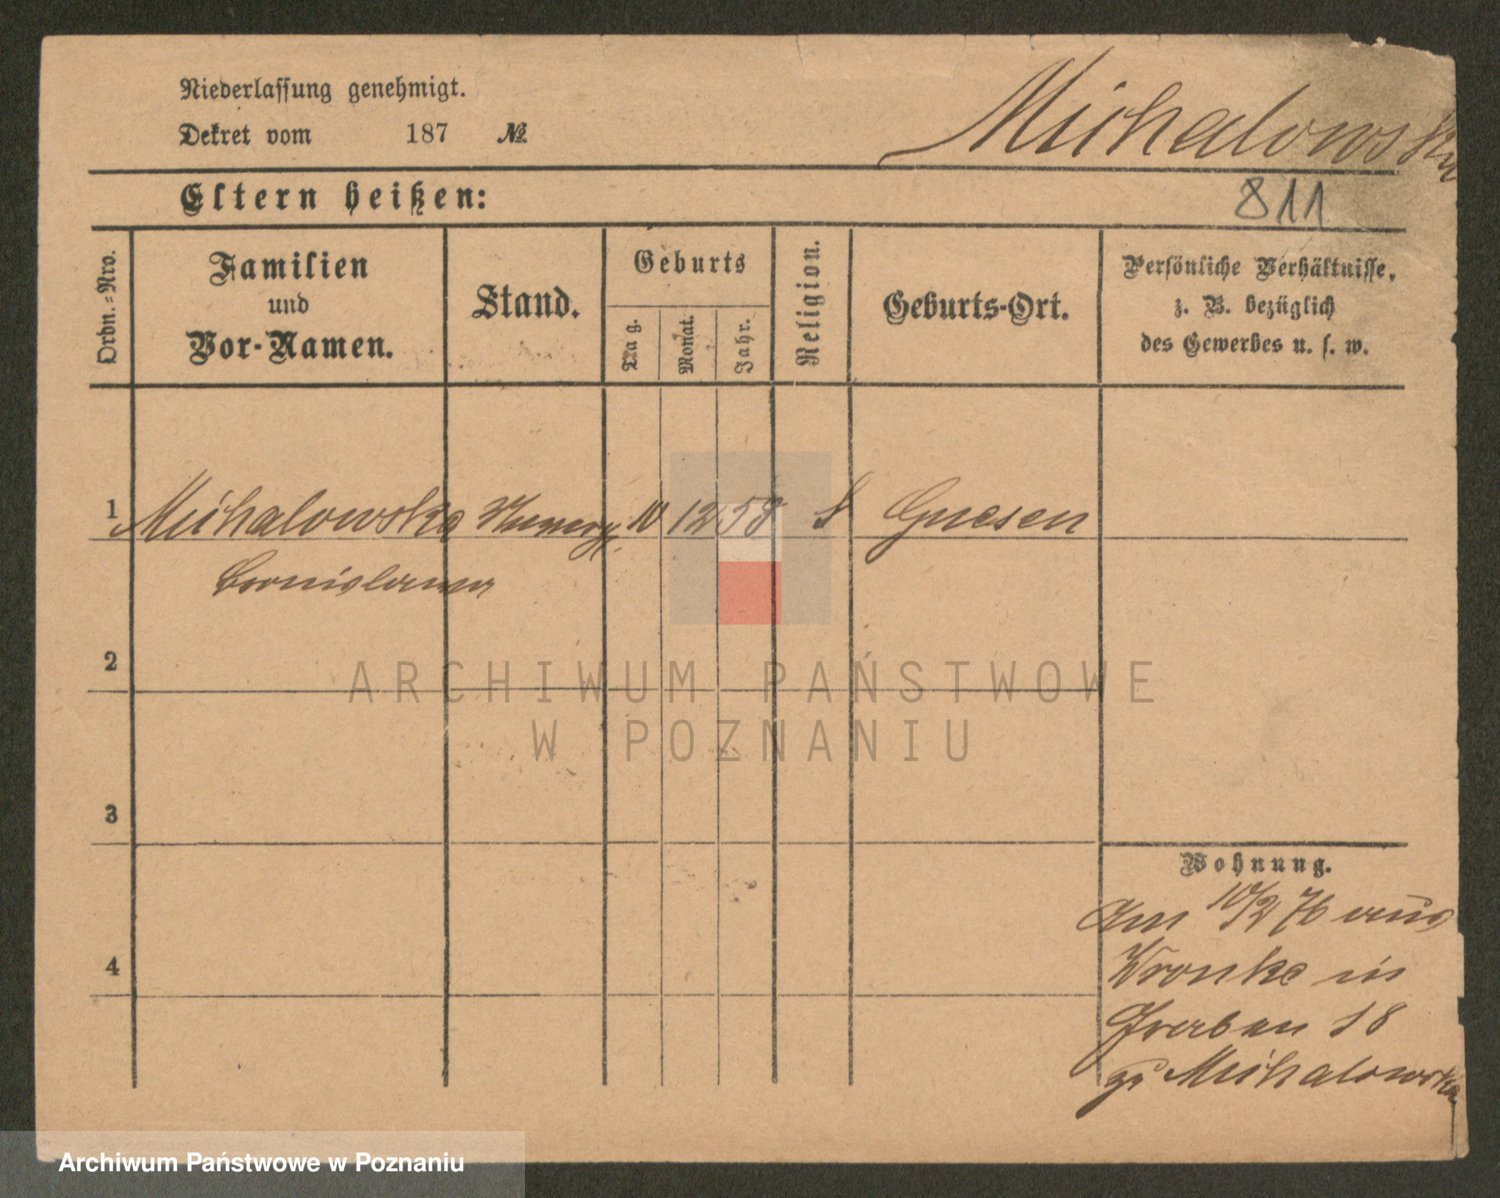 Niederlassung genehmigt.
Dekret vom 187 №.
Michalowska
Eltern heißen:
811
Ordn.-Nro.
Familien
und
Vor-Namen.
Stand.
Geburts
Tag.
Monat.
Jahr.
Religion.
Geburts-Ort.
Persönliche Verhältnisse,
z. B. bezüglich
des Gewerbes u. s. w.
1 Michalowska 10 12 58 Gnesen
Bronislawa
2
3
4
Wohnung.
Am 10/2 76 aus
Wronke in
Graben 18
zu Michalowska
ARCHIWUM PAŃSTWOWE
W POZNANIU
Archiwum Państwowe w Poznaniu